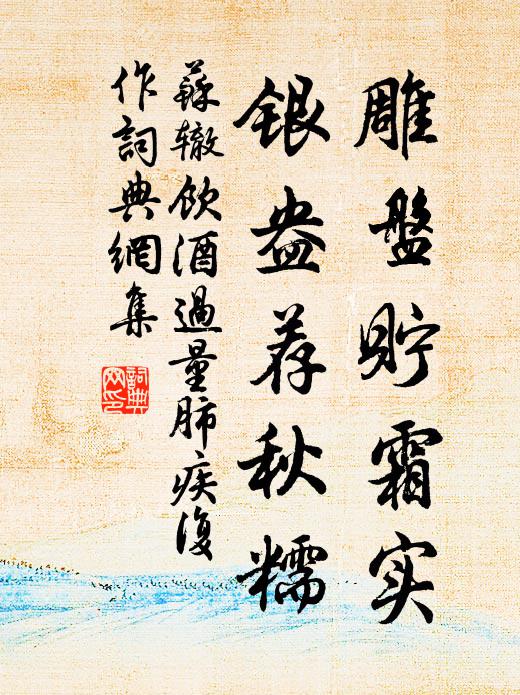 雕盤貯霜实
銀盎荐秋糯
蘇辙飲酒過量肺疾復
作詞典網集
詞典
网印